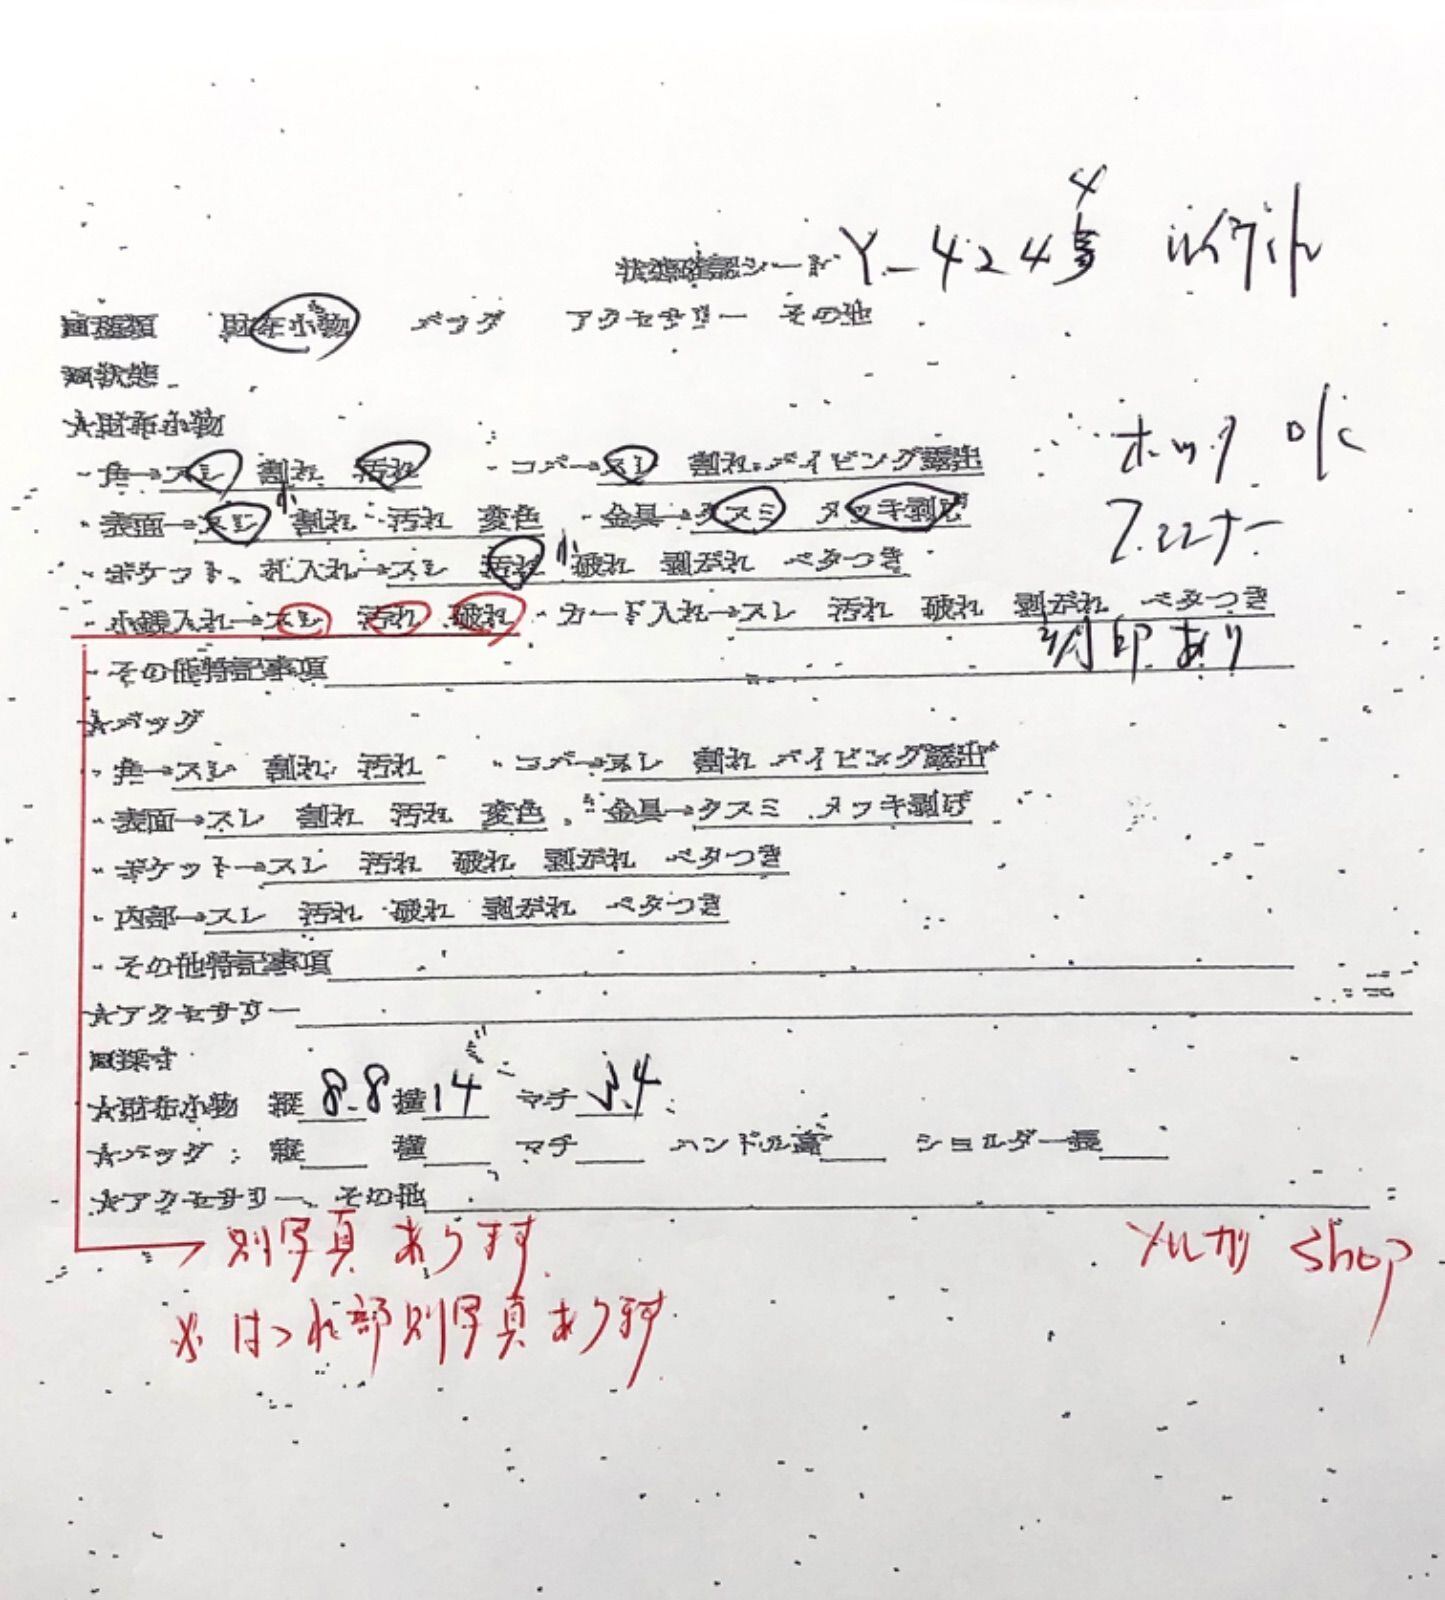 状態確認シート Y-4244
■種類 財布小物 バッグ アクセサリー その他
■状態
★財布小物
・角→スレ 割れ 汚れ ・コバ→スレ 割れ パイピング露出
ホック OK
・表面→スレ 小 割れ 汚れ 変色 ・金具→クスミ メッキ剥げ
・ポケット、札入れ→スレ 汚れ 小 破れ 剥がれ ベタつき
・小銭入れ→スレ 汚れ 破れ ・カード入れ→スレ 汚れ 破れ 剥がれ ベタつき
・その他特記事項 刻印あり
★バッグ
・角→スレ 割れ 汚れ ・コバ→スレ 割れ パイピング露出
・表面→スレ 割れ 汚れ 変色 ・金具→クスミ メッキ剥げ
・ポケット→スレ 汚れ 破れ 剥がれ ベタつき
・内部→スレ 汚れ 破れ 剥がれ ベタつき
・その他特記事項
★アクセサリー
■採寸
★財布小物 縦 8.8 横 14 マチ
★バッグ 縦 横 マチ ハンドル高 ショルダー長
★アクセサリー、その他
別写真あります
shop
※ほつれ部別写真あります